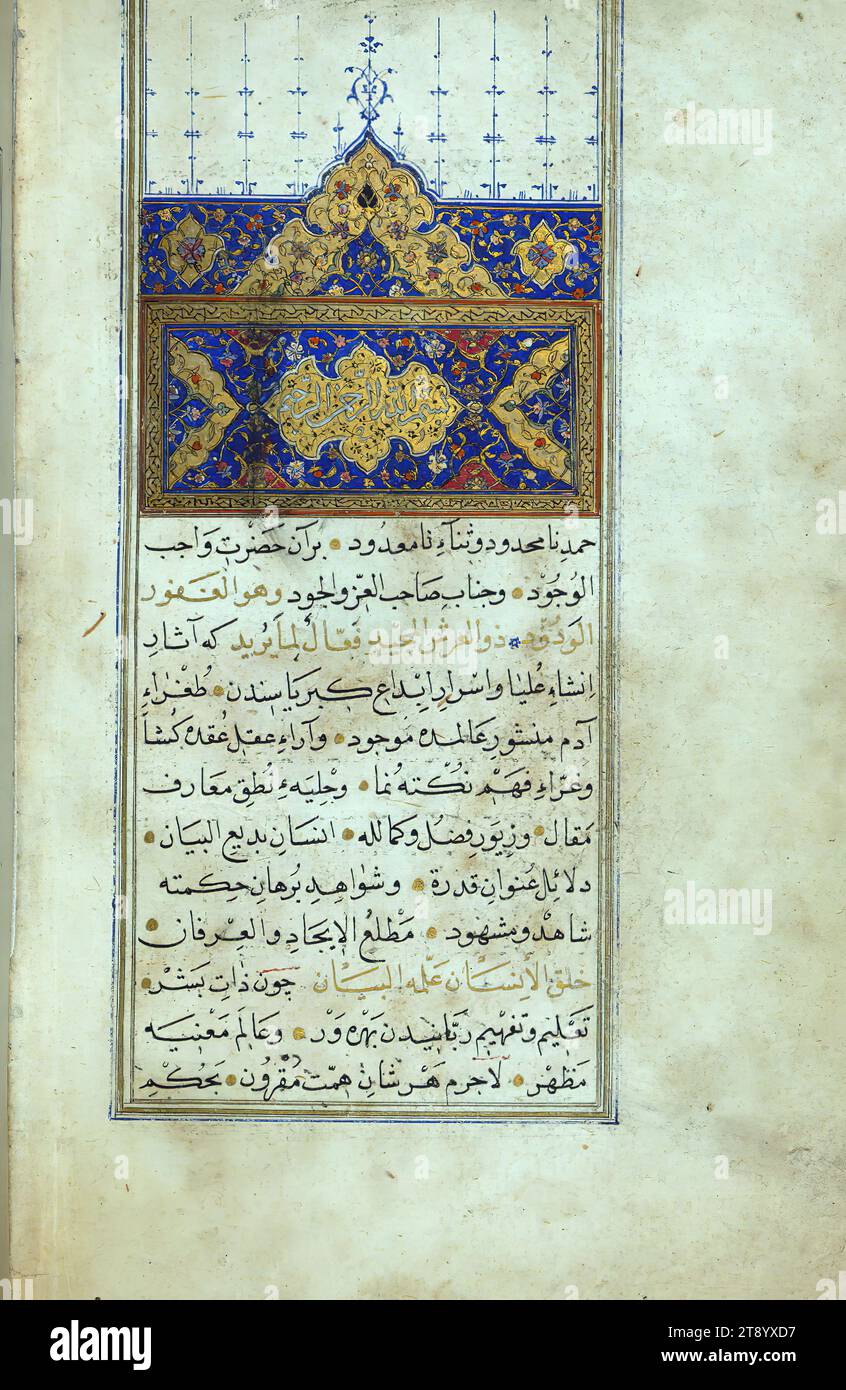 بسم الله الرحمن الرحيم
حمدِ نا محدود و ثنآءِ نا معدود برآن حضرت واجب
الوُجُوْد وجنابِ صاحب العِزّ والجود وهو الغفور
الوَدُوْد ذوالعرش المجيد فعّالٌ لما يُريد كه آثارِ
اِنشاءِ عُليا و اسرارِ اِبداعِ كبرياسِندن طُغراءِ
آدم منشورِ عالمده موجود وآراءِ عقلِ عُقده كُشا
وغرّاءِ فهمِ نُكته نُما وحِليهءِ نُطقِ معارف
مَقال وزِيوَرِ فضل و كمالله انسانِ بديع البيان
دلائلِ عُنوانِ قدرة وشواهدِ بُرهانِ حِكمته
شاهد و مشهود مَطْلعُ الإيجادِ والعِرفان
خلق الإنسان علّمه البيان چون ذاتِ بَشَر
تعليم وتفهيمِ ربّانيدن بَهره وَرْ وعالمِ مَعْنيه
مَظهر لاجرم هر شانِ همّت مقرون بحُكْمِ
alamy
alamy
a
a
Image ID: 2T8YXD7
www.alamy.com